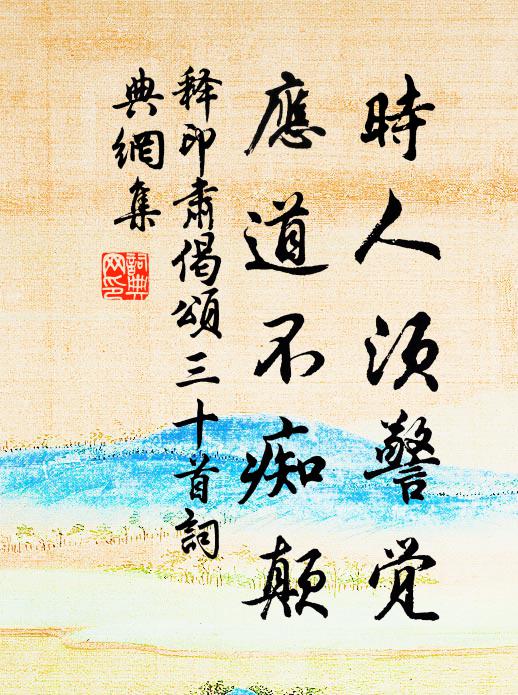 時人须警觉
應道不痴顛
释印肅偈頌三十首詞
典網集
詞典
网印